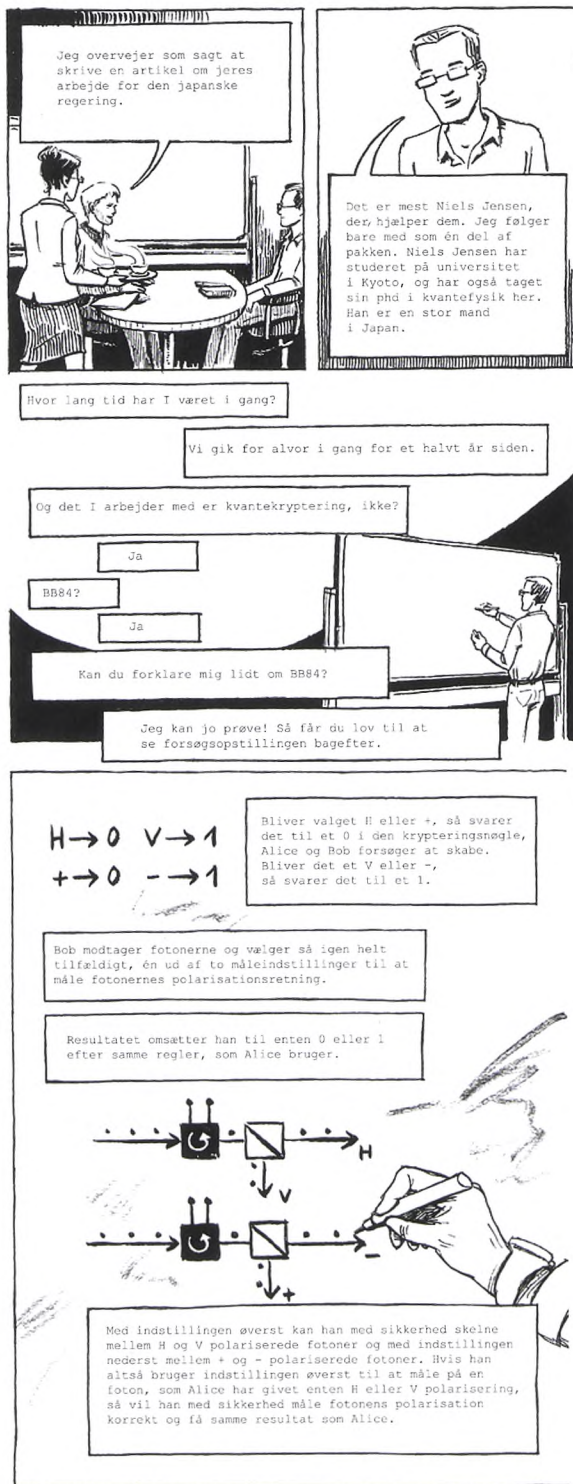 Jeg overvejer som sagt at
skrive en artikel om jeres
arbejde for den japanske
regering.
Det er mest Niels Jensen,
der, hjælper dem. Jeg følger
bare med som én del af
pakken. Niels Jensen har
studeret på universitet
i Kyoto, og har også taget
sin phd i kvantefysik her.
Han er en stor mand
i Japan.
Hvor lang tid har I været i gang?
Vi gik for alvor i gang for et halvt år siden.
Og det I arbejder med er kvantekryptering, ikke?
Ja
BB84?
Ja
Kan du forklare mig lidt om BB84?
Jeg kan jo prøve! Så får du lov til at
se forsøgsopstillingen bagefter.
H→0 V→1
+→0 -→1
Bliver valget H eller +, så svarer
det til et 0 i den krypteringsnøgle,
Alice og Bob forsøger at skabe.
Bliver det et V eller -,
så svarer det til et 1.
Bob modtager fotonerne og vælger så igen helt
tilfældigt, én ud af to måleindstillinger til at
måle fotonernes polarisationsretning.
Resultatet omsætter han til enten 0 eller 1
efter samme regler, som Alice bruger.
H
V
-
+
Med indstillingen øverst kan han med sikkerhed skelne
mellem H og V polariserede fotoner og med indstillingen
nederst mellem + og - polariserede fotoner. Hvis han
altså bruger indstillingen øverst til at måle på en
foton, som Alice har givet enten H eller V polarisering,
så vil han med sikkerhed måle fotonens polarisation
korrekt og få samme resultat som Alice.